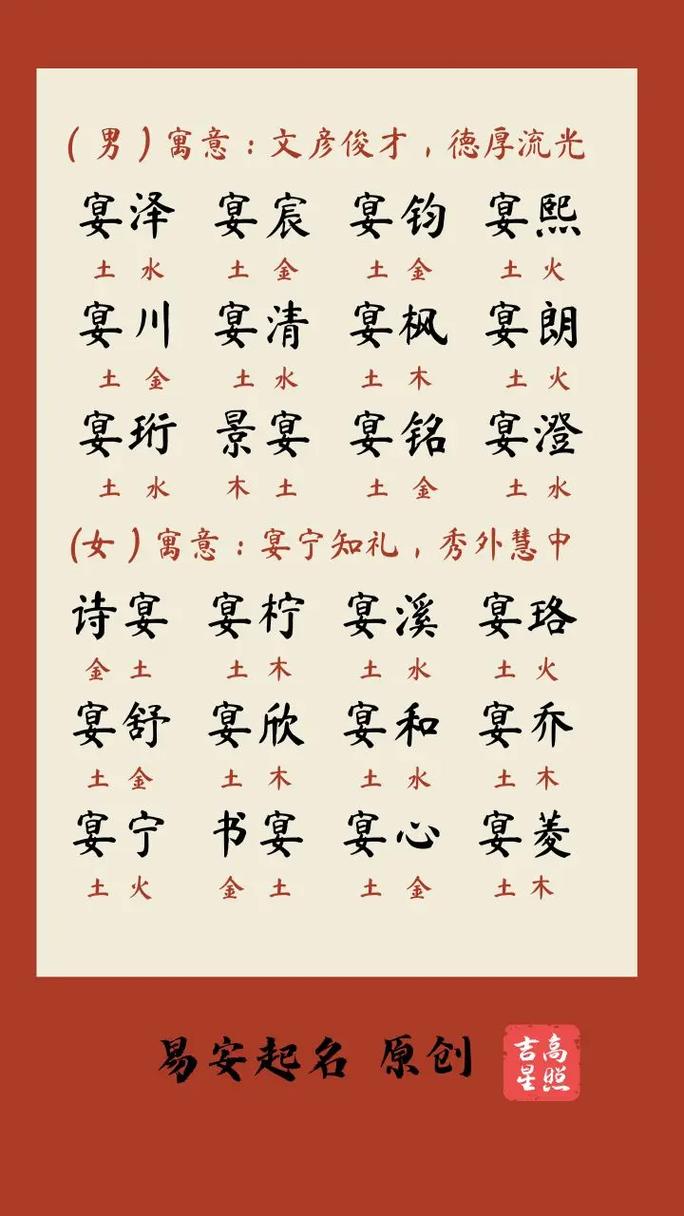 (男)寓意:文彦俊才,德厚流光
宴泽 宴宸 宴钧 宴熙
土水 土金 土金 土火
宴川 宴清 宴枫 宴朗
土金 土水 土木 土火
宴珩 景宴 宴铭 宴澄
土水 木土 土金 土水
(女)寓意:宴宁知礼,秀外慧中
诗宴 宴柠 宴溪 宴珞
金土 土木 土水 土火
宴舒 宴欣 宴和 宴乔
土金 土木 土水 土木
宴宁 书宴 宴心 宴菱
土火 金土 土金 土木
易安起名 原创
吉星高照